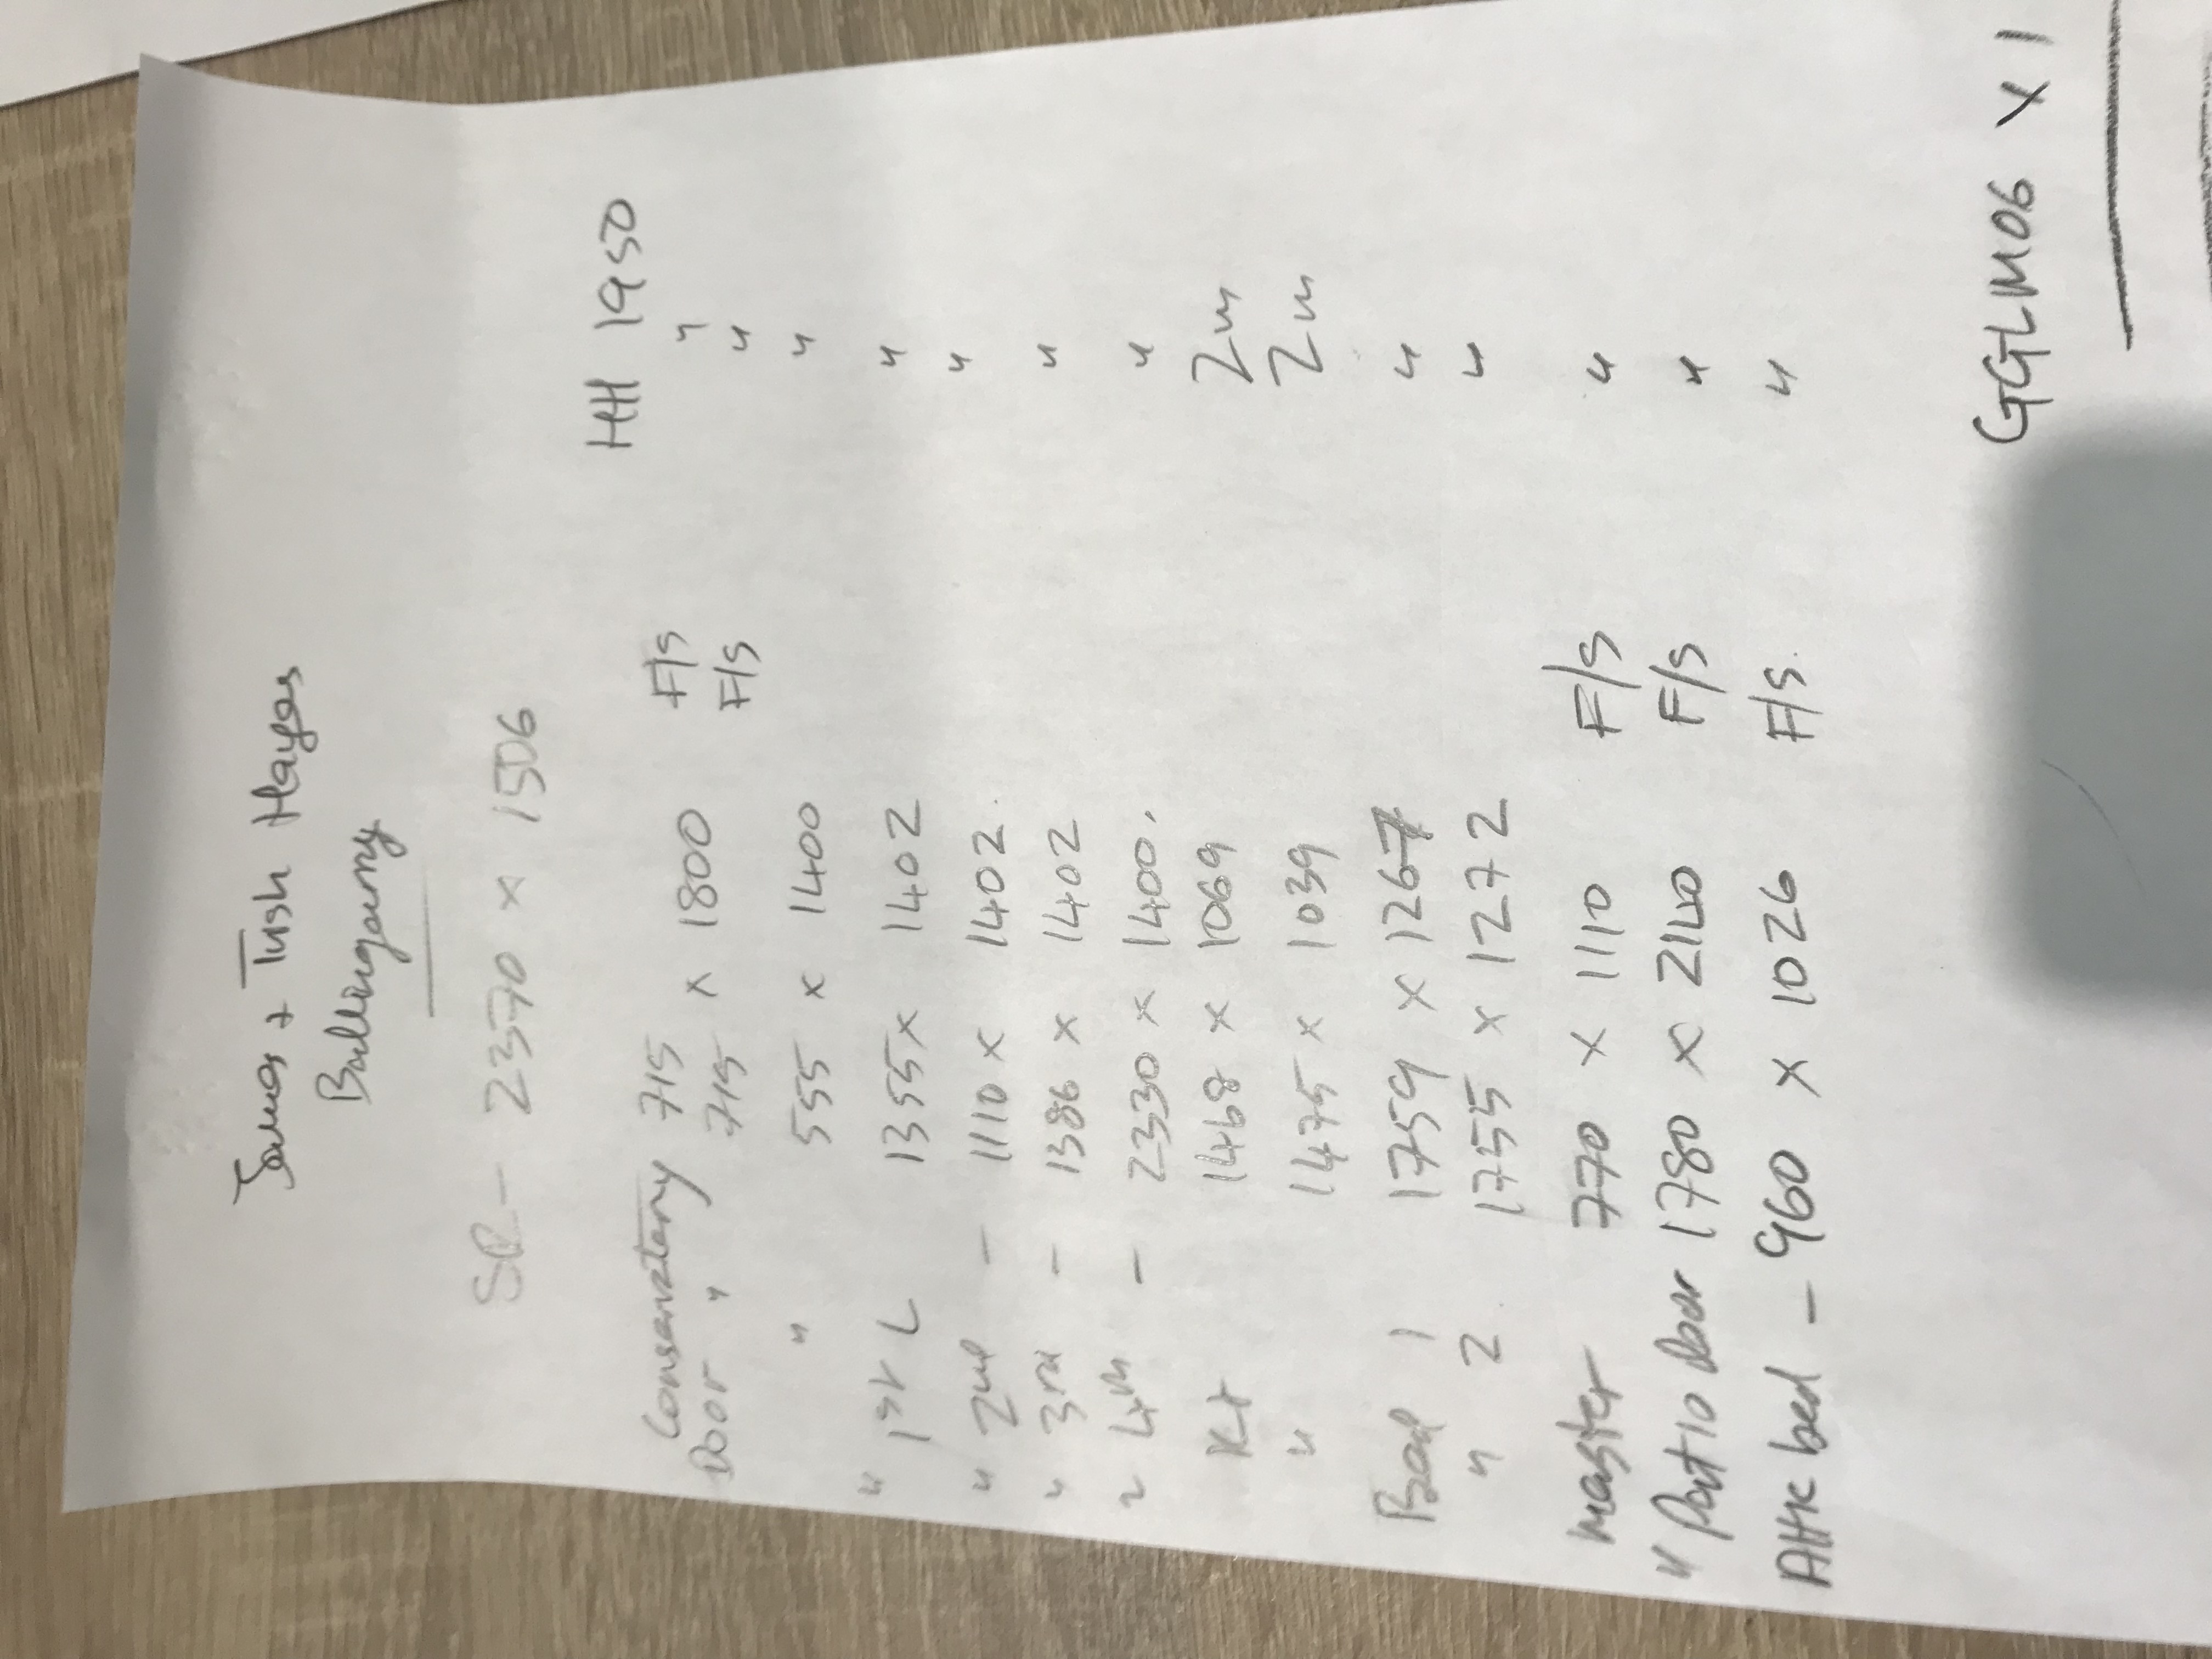 James + Trish Hayes
Ballingarry
SR - 2370 x 1506
HH 1950
Conservatory 715 F/s "
Door " 715 x 1800 F/s "
" 555 x 1400 "
" 1st L 1355 x 1402 "
" 2nd - 1110 x 1402. "
" 3rd - 1386 x 1402 "
" 4th - 2330 x 1400. "
Kit 1468 x 1069 2m
" 1475 x 1039 2m
Bed 1 1759 x 1267 "
" 2 1755 x 1272 "
Master 770 x 1110 F/s "
" Patio Door 1780 x 2140 F/s "
Attic bed - 960 x 1026 F/s. "
GGLM06 x 1